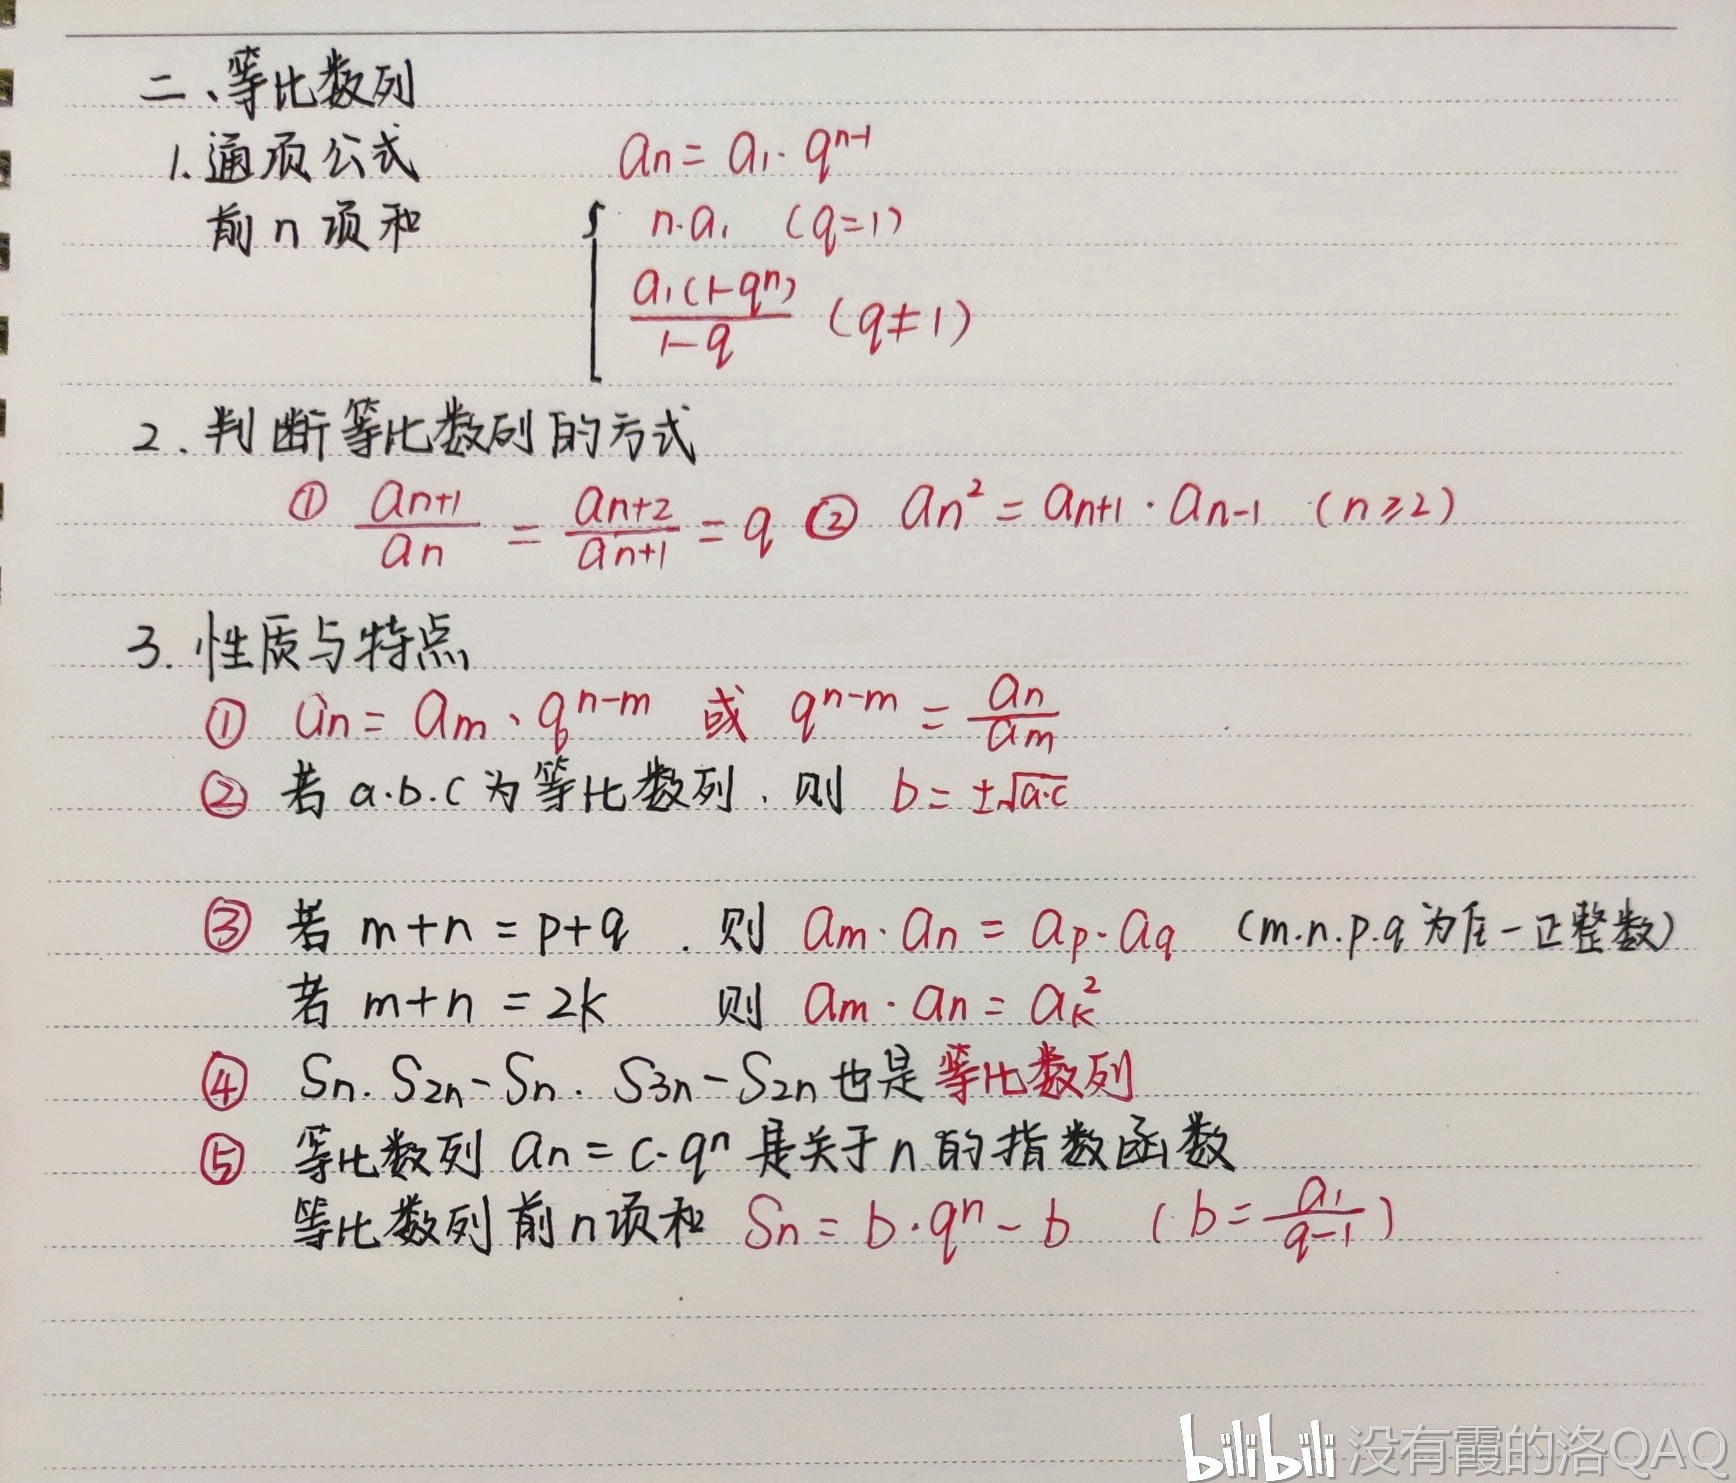 二、等比数列
1. 通项公式 an = a1 · q^(n-1)
前 n 项和 { n·a1 (q=1)
a1(1-q^n)/(1-q) (q≠1)
2. 判断等比数列的方式
① an+1/an = an+2/an+1 = q ② an² = an+1 · an-1 (n≥2)
3. 性质与特点
① an = am · q^(n-m) 或 q^(n-m) = an/am
② 若 a.b.c 为等比数列. 则 b = ±√(a·c)
③ 若 m+n = p+q . 则 am · an = ap · aq (m.n.p.q 为任一正整数)
若 m+n = 2k 则 am · an = ak²
④ Sn. S2n-Sn. S3n-S2n 也是等比数列
⑤ 等比数列 an = c·q^n 是关于 n 的指数函数
等比数列前 n 项和 Sn = b·q^n - b (b = a1/(q-1))
bilibili 没有霞的洛QAQ